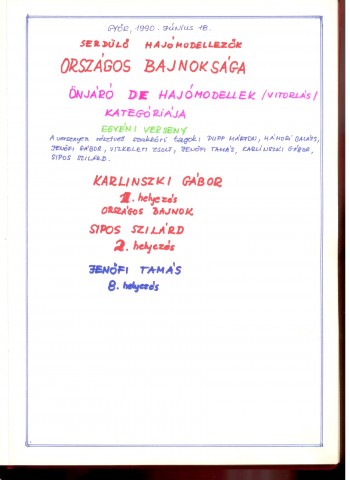 GYŐR, 1990. JÚNIUS 18.
SERDÜLŐ HAJÓMODELLEZŐK
ORSZÁGOS BAJNOKSÁGA
ÖNJÁRÓ DE HAJÓMODELLEK /VITORLÁS/
KATEGÓRIÁJA
EGYÉNI VERSENY
A versenyen résztvett szakköri tagok: PUPP MÁRTON, BALÁZS,
JENŐFI GÁBOR, VIZKELETI ZSOLT, JENŐFI TAMÁS, KARLINSZKI GÁBOR,
SIPOS SZILÁRD.
KARLINSZKI GÁBOR
1. helyezés
ORSZÁGOS BAJNOK
SIPOS SZILÁRD
2. helyezés
JENŐFI TAMÁS
8. helyezés